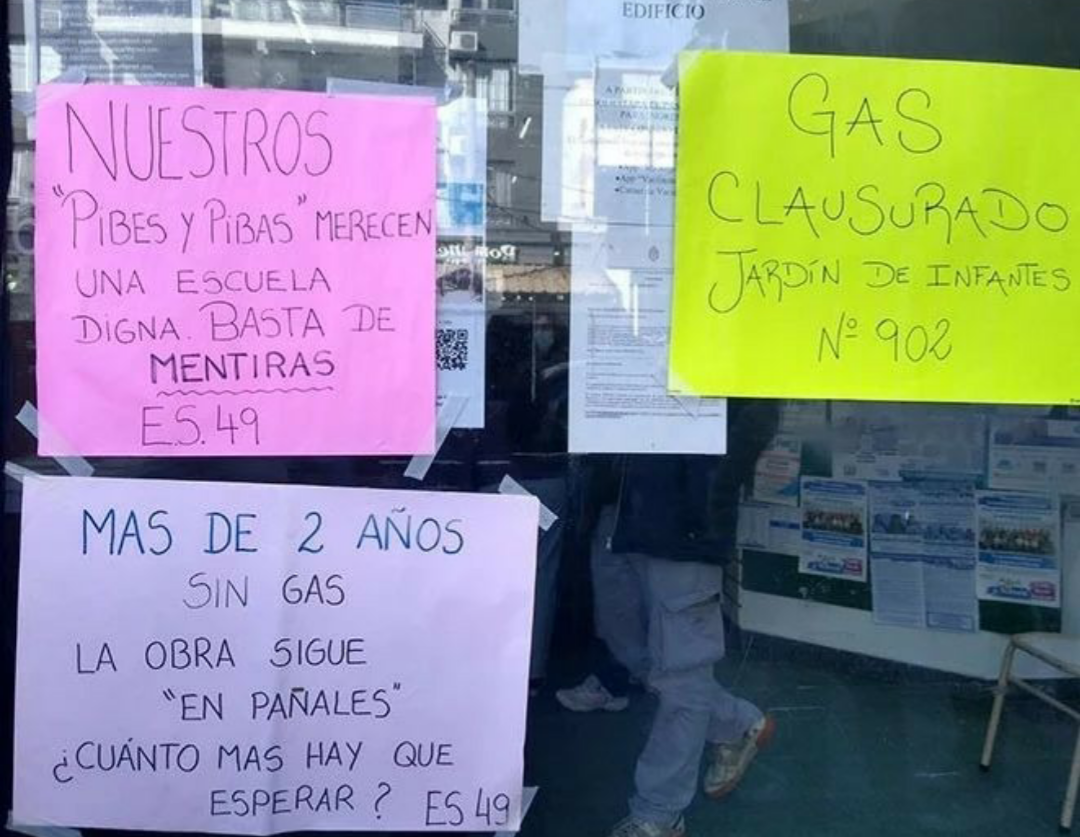 EDIFICIO
NUESTROS
"PIBES Y PIBAS" MERECEN
UNA ESCUELA
DIGNA. BASTA DE
MENTIRAS
E.S. 49
GAS
CLAUSURADO
JARDÍN DE INFANTES
Nº 902
MAS DE 2 AÑOS
SIN GAS
LA OBRA SIGUE
"EN PAÑALES"
¿CUÁNTO MAS HAY QUE
ESPERAR? ES 49